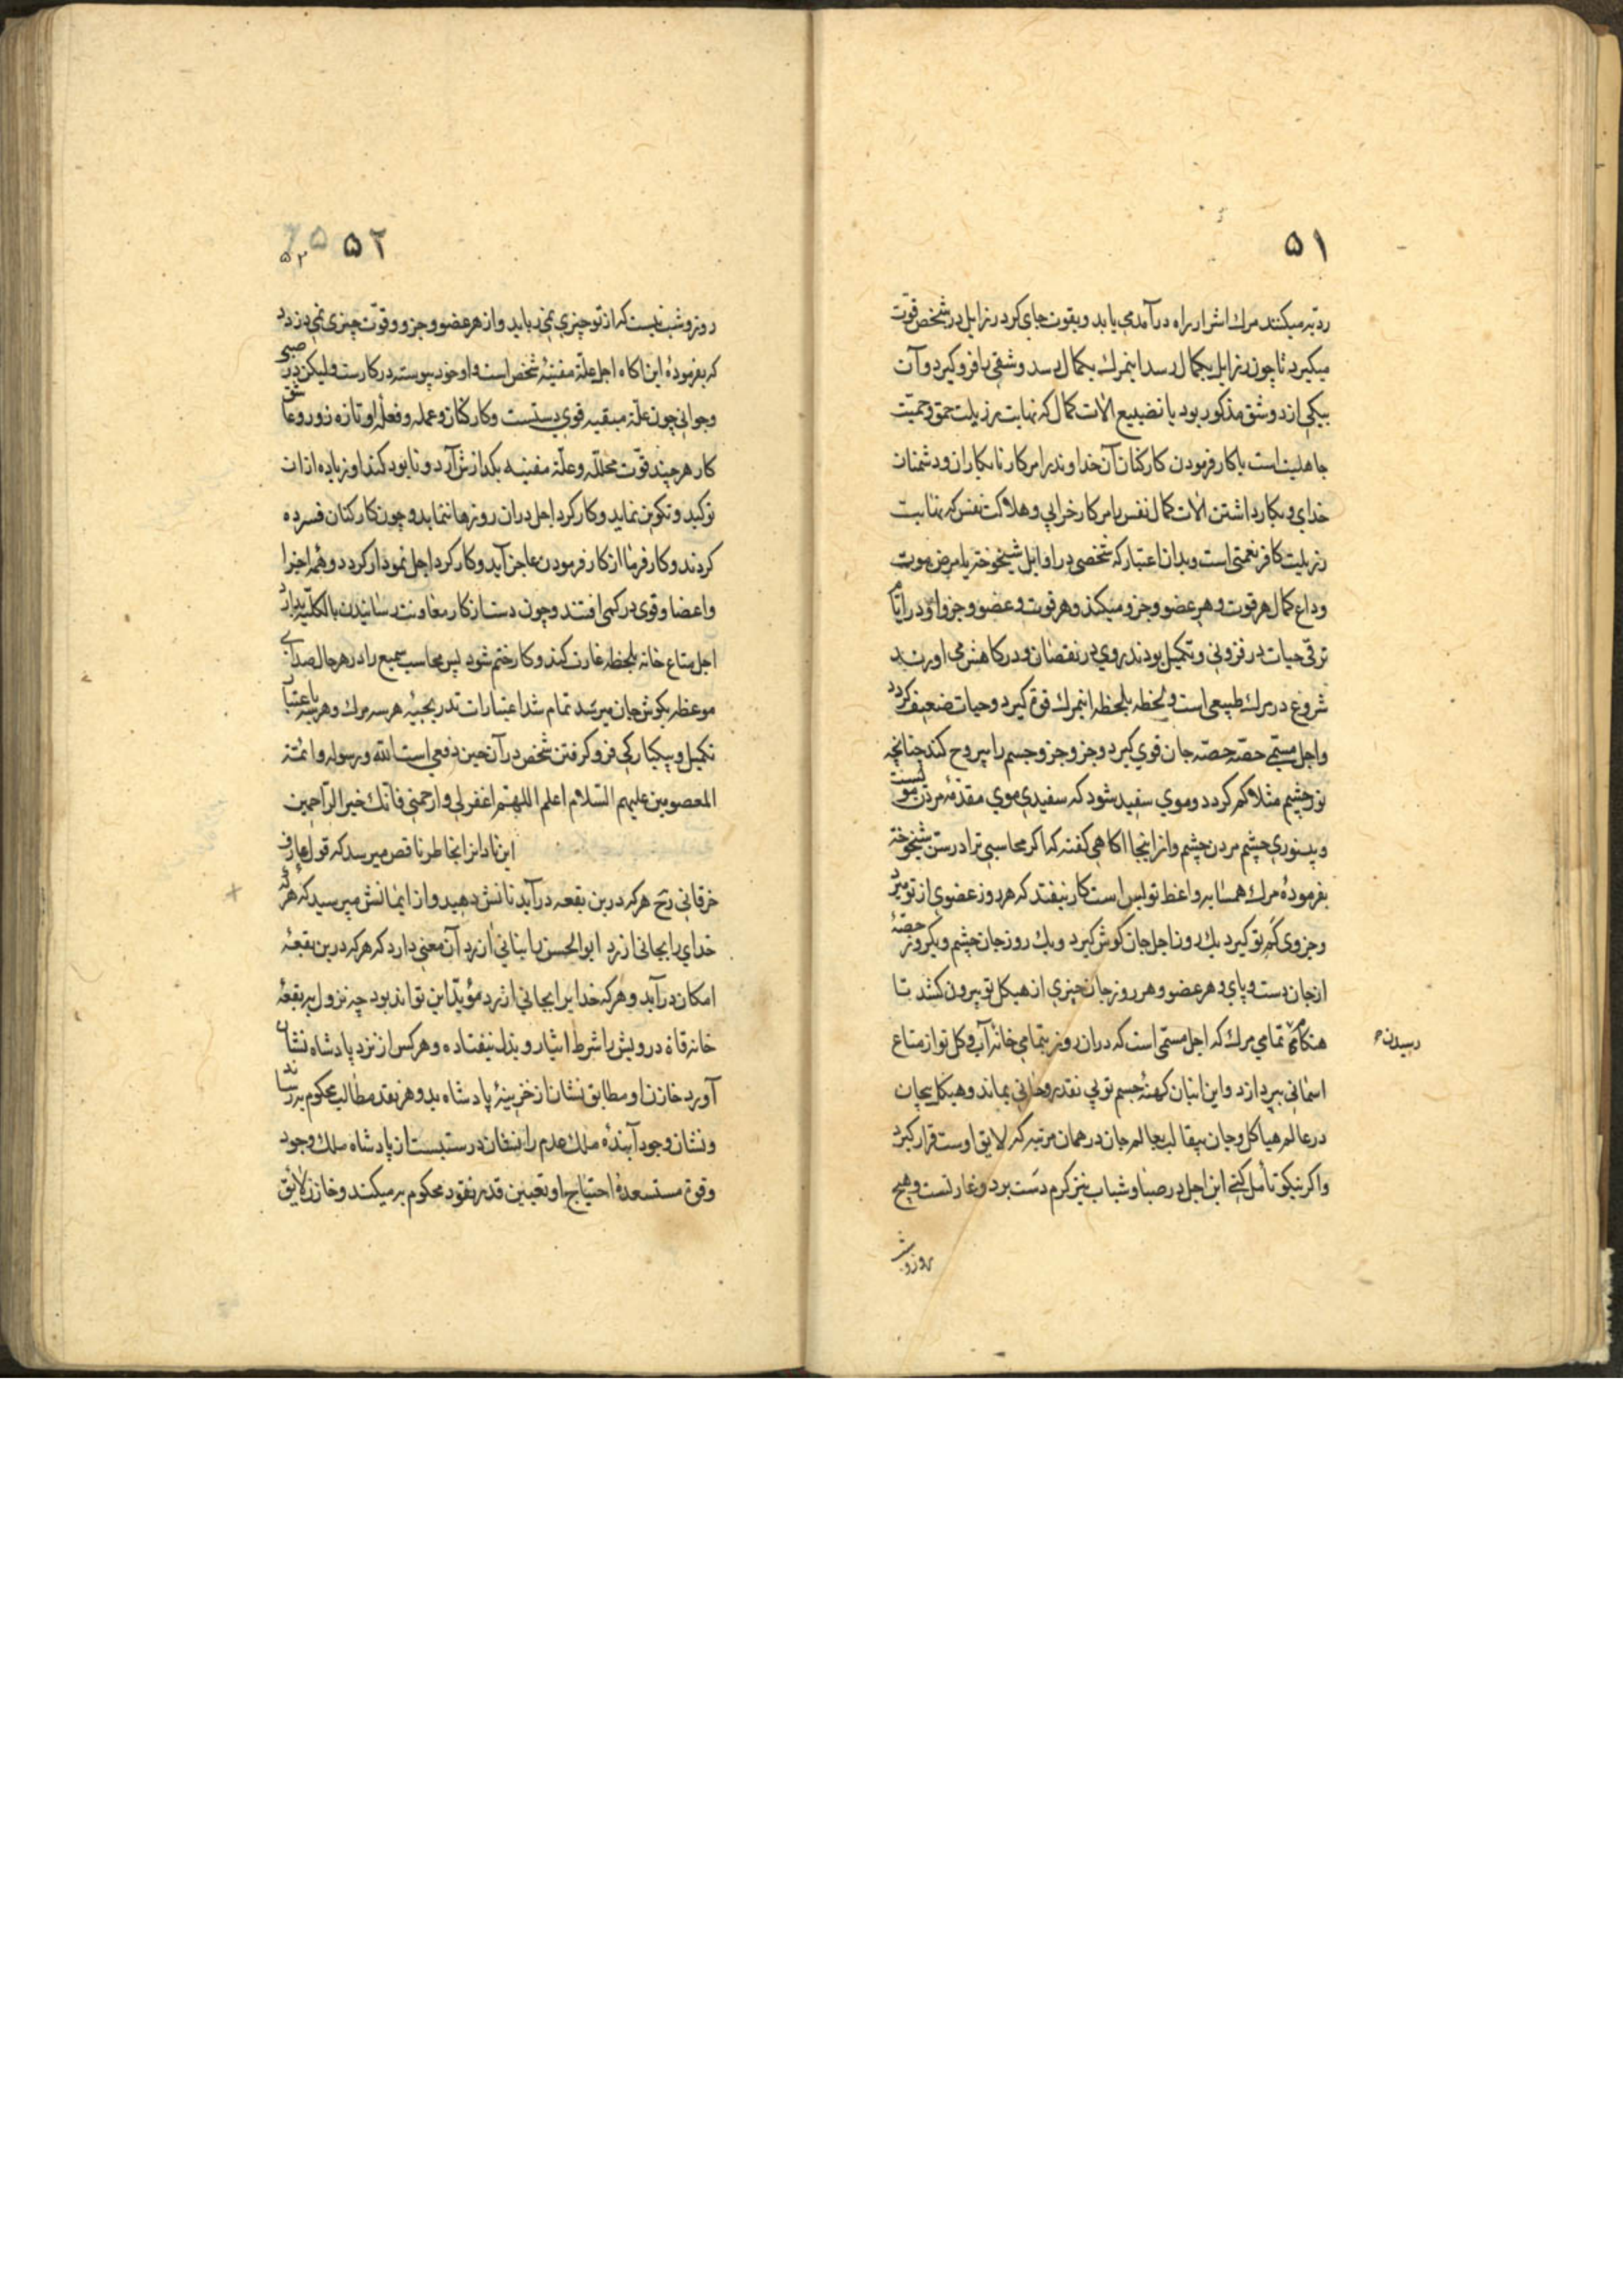 ۵۱
ردیه میکنند مرك اشرار راه درآمد می یابد و بقوت جای کرد رزایل در شخص قوت
میکیرد تا چون رزایل بکمال رسد اینمرك بکمال رسد و شقی را فرو کیرد و آن
بیکی از دو شق مذکور بود یا تضییع الات کمال که نهایت رزیلت حمق و حمیّت
جاهلیت است یا کار فرمودن کارکنان آن خداوند را در کار نابکاران و دشمنان
خدای و بکار داشتن الات کمال نفس را در کار خرابی و هلاکت نفس که نهایت
رزیلت کافر نعمتی است و بدان اعتبار که شخصی در اوایل شیخوختیا مرض موت
وداع کمال هر قوت و هر عضو و جزو میکند و هر قوت و عضو و جزو او در ایام
ترقی حیات در فزونی و تکمیل بودند روی در نقصان و در کاهش می اورند
شروع در مرك طبیعی است و لحظه بلحظه اینمرك قوة کیرد و حیات ضعیف کردد
و اجل مسمّی حصّه حصّه جان قوی کیرد و جزو جزو جسم را بیروح کند چنانچه
نور چشم مثلا کم کردد و موی سفید شود که سفیدی موی مقدمۀ مردن موست
و بینوری چشم مردن چشم و از اینجا اکاهی کفته که اکر محاسبی ترا در سن شیخوخة
بفرمودۀ مرك همسایه واعظ تو بس است کار نیفتد که هر روز عضوی از تو میرد
و جزوی کم تو کیرد یك روز اجل جان کوش کیرد و یك روز جان چشم و یکروز حصّۀ
از جان دست و پای و هر عضو و هر روز جان چیزی از هیکل تو بیرون کشد تا
هنکام تمامی مرك که اجل مسمّی است که دران روز بتمامی خانۀ آب و کل تو از متاع
رسیدن
اسمانی بپردازد و این انبان کهنۀ جسم تو بی نقد روحانی بماند و هیکل بیجان
در عالم هیاکل و جان بیقالب بعالم جان در همان مرتبه که لایق اوست قرار کیرد
و اکر نیکو تأمل کنی این اجل در صبا و شباب نیز کرم دست برد و غارتست و هیچ
روز و ش
۵۲
۵۲
روز و شب نیست که از تو چیزی نمی رباید و از هر عضو و جزو و قوّت چیزی نمی دزدد
که بفرمودۀ این اکاه اجل علّة مفنیۀ شخص است و او خود پیوسته در کارست ولیکن در صبی
و جوانی چون علّة مبقیه قوی دستست و کارکنان و عمله و فعلۀ او تازه زور و عاشق
کار هر چند قوّت محلّله و علّة مفنیه بکدازش آرد و نابود کند او زیاده ازان
تولید و تکوین نماید و کارکرد اجل دران روزها ننماید و چون کارکنان فسرده
کردند و کارفرما از کار فرمودن عاجز آید و کارکرد اجل نمودار کردد و همه اجزا
و اعضا و قوی در کمی افتند و چون دست از کار معاونت رسانیدن بالکلّیه بدارد
اجل متاع خانه بلحظه غارت کند و کار ختم شود پس محاسب سمیع را در هر حال صدای
موعظه بکوش جان میرسد تمام شد اعتبارات تدریجیۀ هر سه مرك و هر سه باعتبار
تکمیل و بیکبارکی فرو کرفتن شخص در آن حین دفعی است الله و رسوله و ائمّته
المعصومین علیهم السّلام اعلم اللهّم اغفر لی وارحمنی فانّك خیر الرّاحمین
این نادانرا بخاطر ناقص میرسد که قول عارف
خرقانی رح هر که درین بقعه درآید نانش دهید و از ایمانش مپرسید که هر که
خدایرا بجانی ارزد ابو الحسن را بنانی ارزد آن معنی دارد که هر که درین بقعۀ
امکان درآید و هر که خدایرا بجانی ارزد مؤیّد این تواند بود چه نزول ببقعۀ
خانه قاة درویش را شرط ایثار و بذل نیفتاده و هر کس از نزد پادشاه نشان
آورد خازن او مطابق نشان از خزینۀ پادشاه بدو هر نقد مطالب محکوم به رساند
و نشان وجود آیندۀ ملك عدم را نشان درستیست از پادشاه ملك وجود
و قوۀ مستعدۀ احتیاج او تعیین قدر نقود محکوم به میکند و خازن لایق